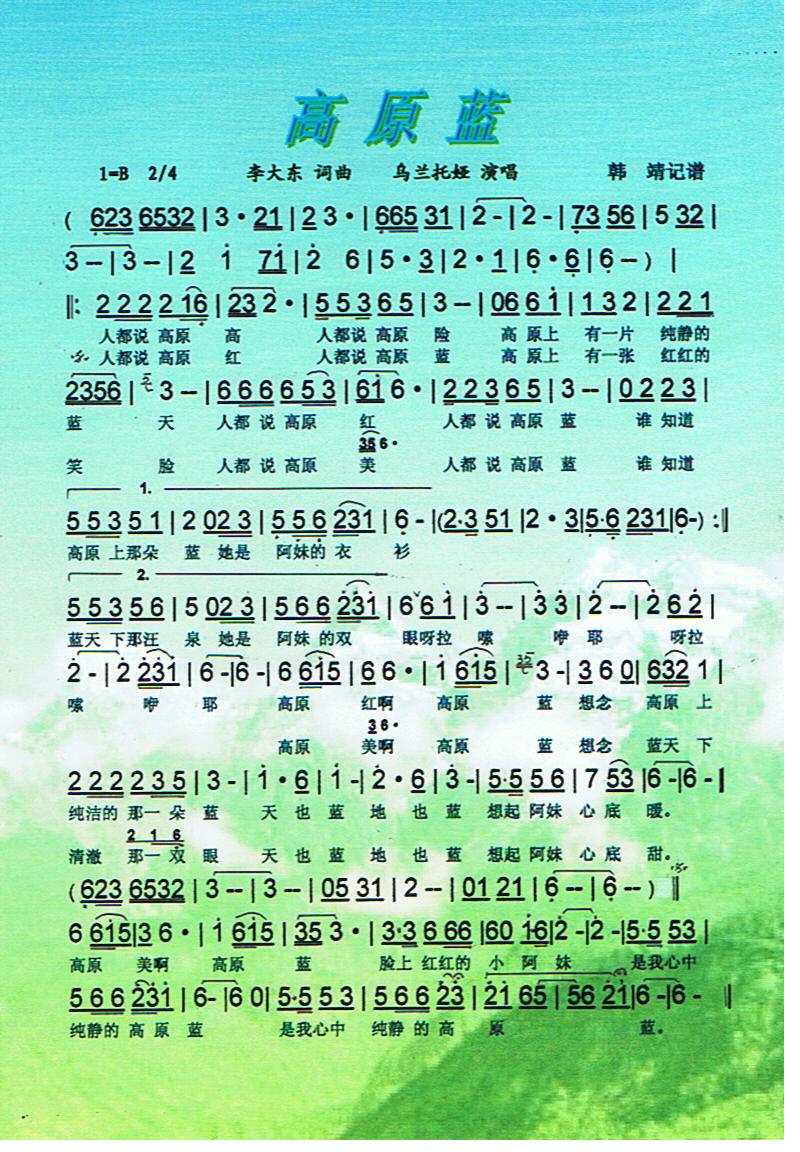 高原蓝
1=B 2/4 李大东 词曲 乌兰托娅 演唱 韩 靖记谱
( 623 6532 | 3 · 21 | 2 3 · | 665 31 | 2 - | 2 - | 73 56 | 5 32 |
3 -- | 3 -- | 2 i 7i | 2 6 | 5 · 3 | 2 · 1 | 6 · 6 | 6 -- ) |
‖: 2 2 2 2 16 | 23 2 · | 5 5 3 6 5 | 3 -- | 06 6 i | 1 3 2 | 2 2 1
人都说 高原 高 人都说 高原 险 高 原上 有一片 纯静的
人都说 高原 红 人都说 高原 蓝 高 原上 有一张 红红的
2356 | 3 -- | 6 6 6 6 5 3 | 6i 6 · | 2 2 3 6 5 | 3 -- | 0 2 2 3 |
蓝 天 人都 说 高原 红 人都 说 高原 蓝 谁 知道
35 6 ·
笑 脸 人都 说 高原 美 人都 说 高原 蓝 谁 知道
1.
5 5 3 5 1 | 2 02 3 | 5 5 6 231 | 6 - |(2·3 51 |2 · 3|5·6 231|6-) :‖
高原 上那朵 蓝 她是 阿妹的 衣 衫
2.
5 5 3 5 6 | 5 02 3 | 5 6 6 231 | 6 6 i | 3 -- | 3 3 | 2 -- | 2 6 2 |
蓝天 下那汪 泉 她是 阿妹 的双 眼呀拉 嗦 咿 耶 呀拉
2 - | 2 231 | 6 -|6 -| 6 6i5 | 6 6 · | i 6i5 | 3 -| 3 6 0| 632 1 |
嗦 咿 耶 高原 红啊 高原 蓝 想念 高原 上
3 6 ·
高原 美啊 高原 蓝 想念 蓝天 下
2 2 2 2 3 5 | 3 - | i · 6 | i -| 2 · 6 | 3 -| 5·5 5 6 | 7 53 |6 -|6 - |
纯洁的 那一 朵 蓝 天 也 蓝 地 也 蓝 想起 阿妹 心 底 暖。
2 1 6
清澈 那一 双 眼 天 也 蓝 地 也 蓝 想起 阿妹 心 底 甜。
( 623 6532 | 3 -- | 3 -- | 05 31 | 2 -- | 01 21 | 6 -- | 6 -- ) ‖
6 6i5|3 6 · | i 6i5 | 35 3 · | 3·3 6 66 |60 i6|2 -|2 -|5·5 53 |
高原 美啊 高原 蓝 脸上 红红的 小 阿 妹 是我心中
5 6 6 231 | 6- |6 0| 5·5 5 3 | 5 6 6 23 | 21 65 | 56 21|6 -|6 - ‖
纯静的 高 原 蓝 是我心中 纯静 的 高 原 蓝。